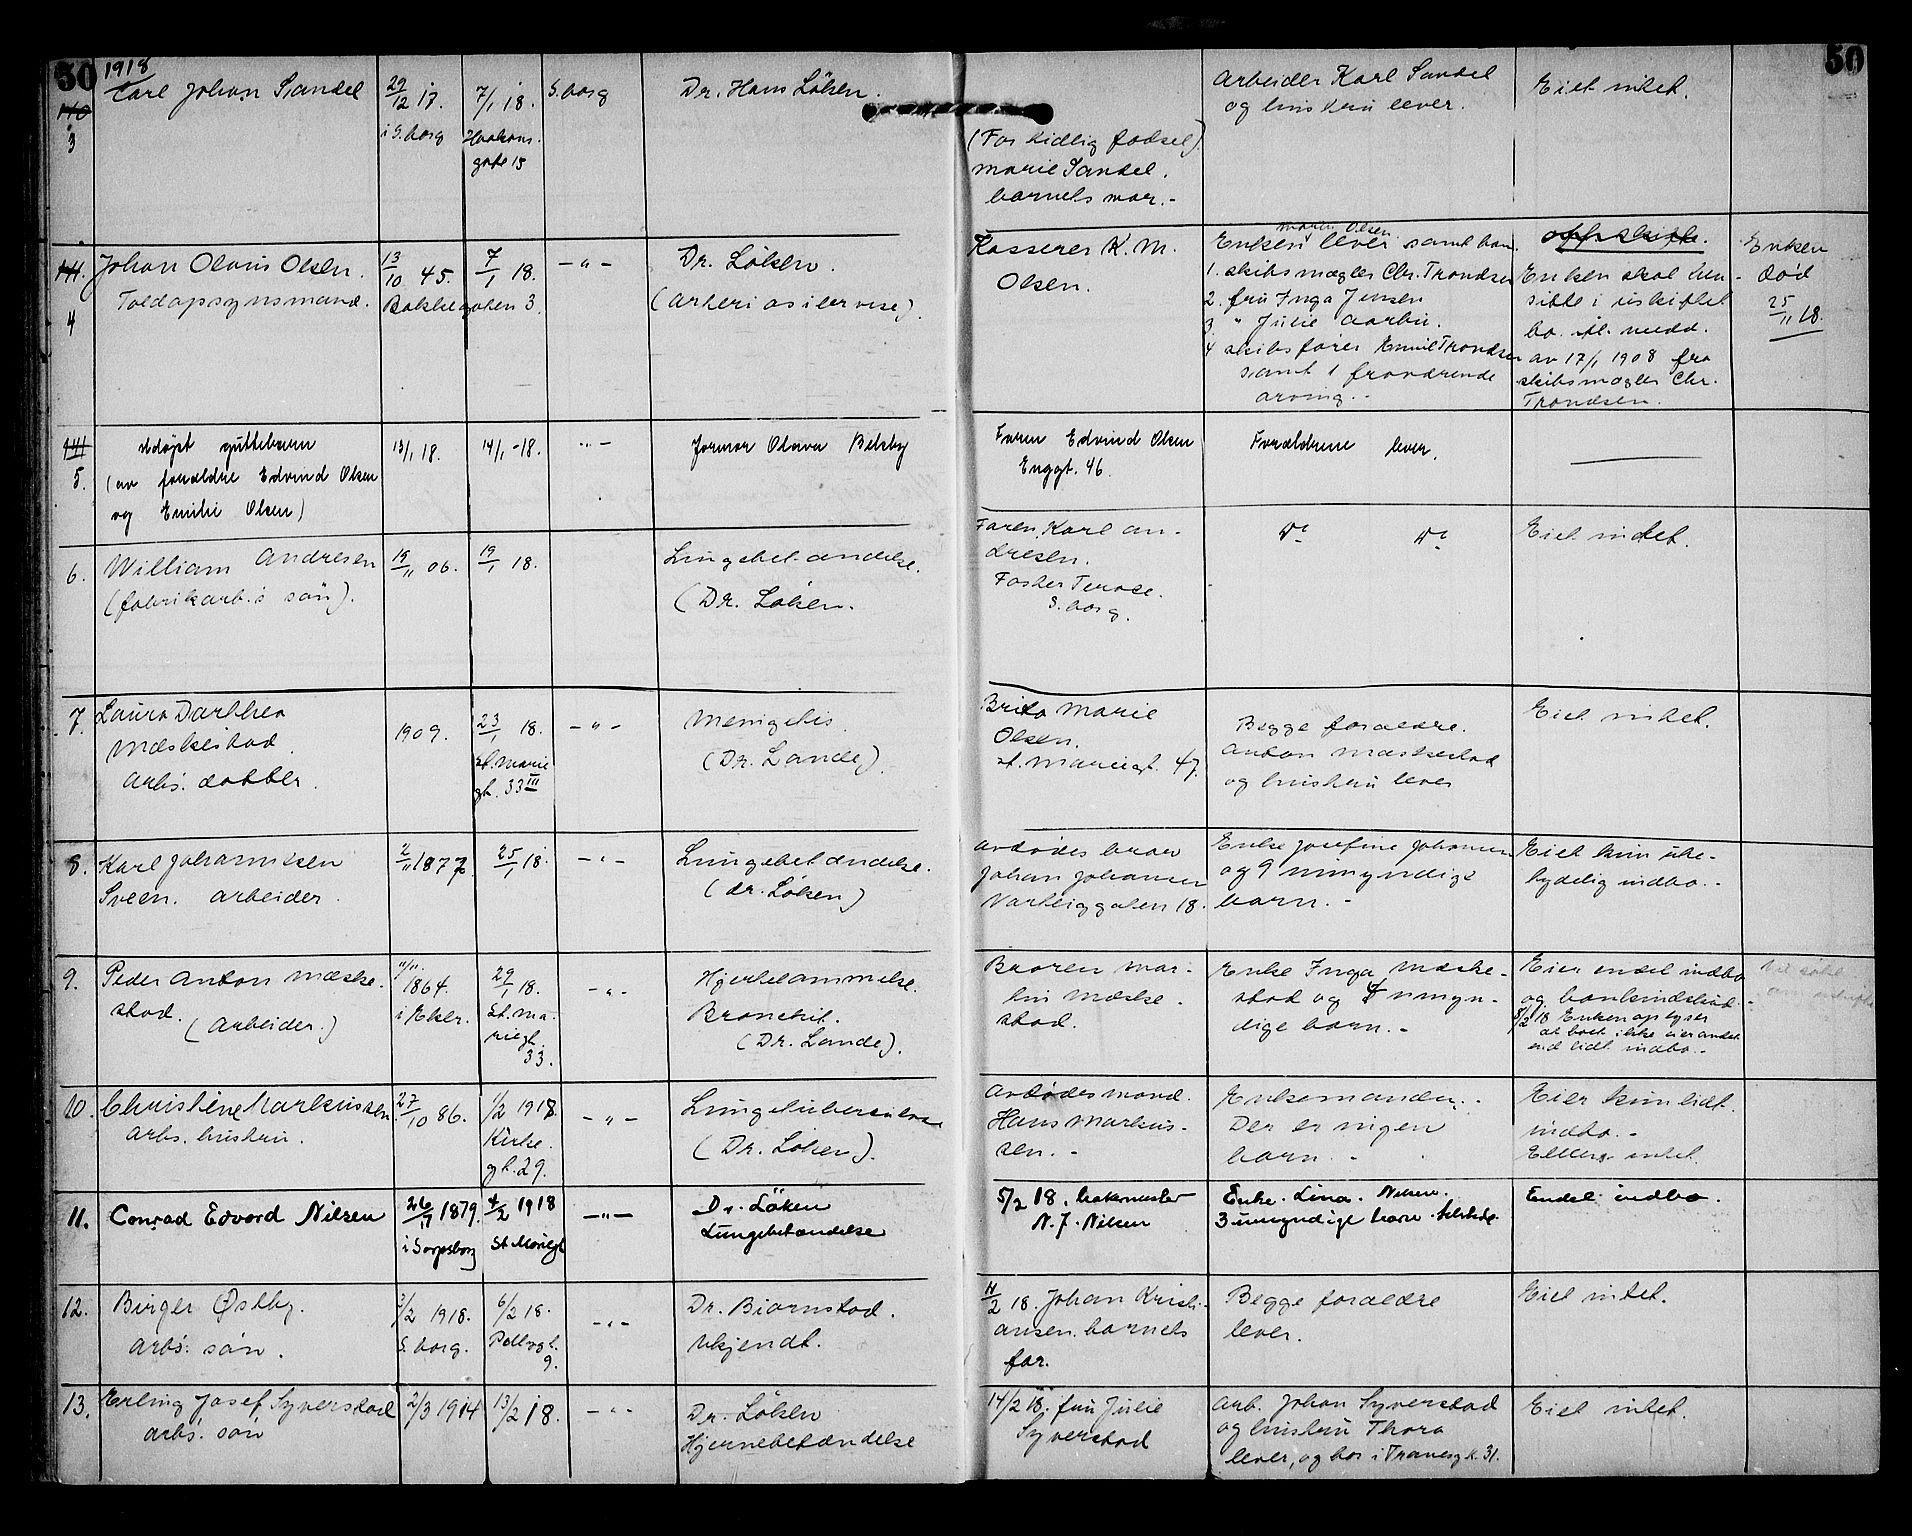 50
1918
50
110
3
Carl Johan Sandel
29/12 17.
i S.borg
7/1 18.
Haakons-
gate 15
S.borg
Dr. Hans Löken.
(For tidlig födsel).
Marie Sandel.
barnets mor.-
Arbeider Karl Sandel
og hustru lever.
Eiet intet.
111.
4
Johan Olaus Olsen.
Toldopsynsmand.
13/10 45.
7/1 18.
Bakkegaten 3.
-"-
Dr. Löken.
(Arteriosclerose).
Kasserer K. M.
Olsen.
Maria Olsen
Enken lever samt barn.
1. skibsmægler Chr. Trondsen
2. fru Inga Jensen
3. " Julie Aarbu.
4 skibsfører Emil Trondsen
samt 1 fraværende
arving.-
Enken skal hen-
sitte i uskiftet
bo. ifl. medd.
av 17/1 1908 fra
skibsmægler Chr.
Trondsen.
Enken
död
25/11 18.
5.
Udöpt guttebarn
(av forældre Edvind Olsen
og Emilie Olsen)
13/1 18.
14/1-18.
-"-
Jormor Olava Bekby
Faren Edvind Olsen
Enggt. 46.
Forældrene lever.
6.
William Andresen
(fabrikarb.s sön).
19/11 06.
19/1 18.
Lungebetændelse.
(Dr. Löken.
Faren, Karl An-
dresen.
S.borg.
Do Do
Eiet intet.
7.
Laura Darthea
Mæskestad
Arbs. datter.
1909.
23/1 18.
St. Marie
gt. 33 III
-"-
Menigitis
(Dr. Lande).
Brita Marie
Olsen.
st. Mariegt. 47.
Begge forældre.
Anton Mæskestad
og hustru lever
Eiet intet.
8.
Karl Johannesen
Sveen. arbeider.
2/11 1877
25/1 18.
-"-
Lungebetændelse.
(dr. Löken)
Avdödes bror
Johan Johansen
Varteiggaten 18.
Enke Josefine Johansen
og 9 umyndige
barn.-
Eiet kun ube-
tydelig indbo.-
9.
Peder Anton Mæske-
stad.
(Arbeider.)
11/11.
1864.
i Eker.
29/1 18.
St. Ma-
riegt.
33.
-"-
Hjertelammelse.
Bronchit.
(Dr. Lande).
Broren Mar-
tin Mæske-
stad.
Enke Inga Mæske-
stad og 4 umyn-
dige barn.-
Eier endel indbo
og bankindskud.
5/2 18 Enken oplyser
at boet ikke eier andet
end lidt indbo.-
10.
Christine Markussen
arbs. hustru.
27/10 86.
1/2 1918
Kirke-
gt. 29.
-"-
Lungetuberculose
(Dr. Löken).
Avdödes mand.
Hans Markus-
sen.-
Enkemanden.-
Der er ingen
barn.-
Eier kun lidt
indbo.-
Ellers intet.
11.
Conrad Edvard Nilsen
1879.
i Sarpsborg
4/2 1918
St Mariegt
-"-
Dr. Löken
Lungebetændelse
5/2 18. bakermester
N. J. Nilsen
Enke Lina Nilsen.
3 umyndige barn
Endel indbo.
12.
Birger Østby.
Arbs. sön.
3/2 1918.
S.borg.
6/2 18.
9.
-"-
Dr. Biörnstad.
Ukjendt.
11/2 18. Johan Kristi-
ansen. barnets
far.
Begge forældre
lever.
Eiet intet.
13.
Erling Josef Syverstad
arbs. sön
2/3 1914
13/2 18.
-"-
Dr. Löken
Hjernebetændelse
14/2 18. fru Julie
Syverstad
Arb. Johan Syverstad
og hustru Thora
lever, og bor i Tranesgt. 31.
Eiet intet.